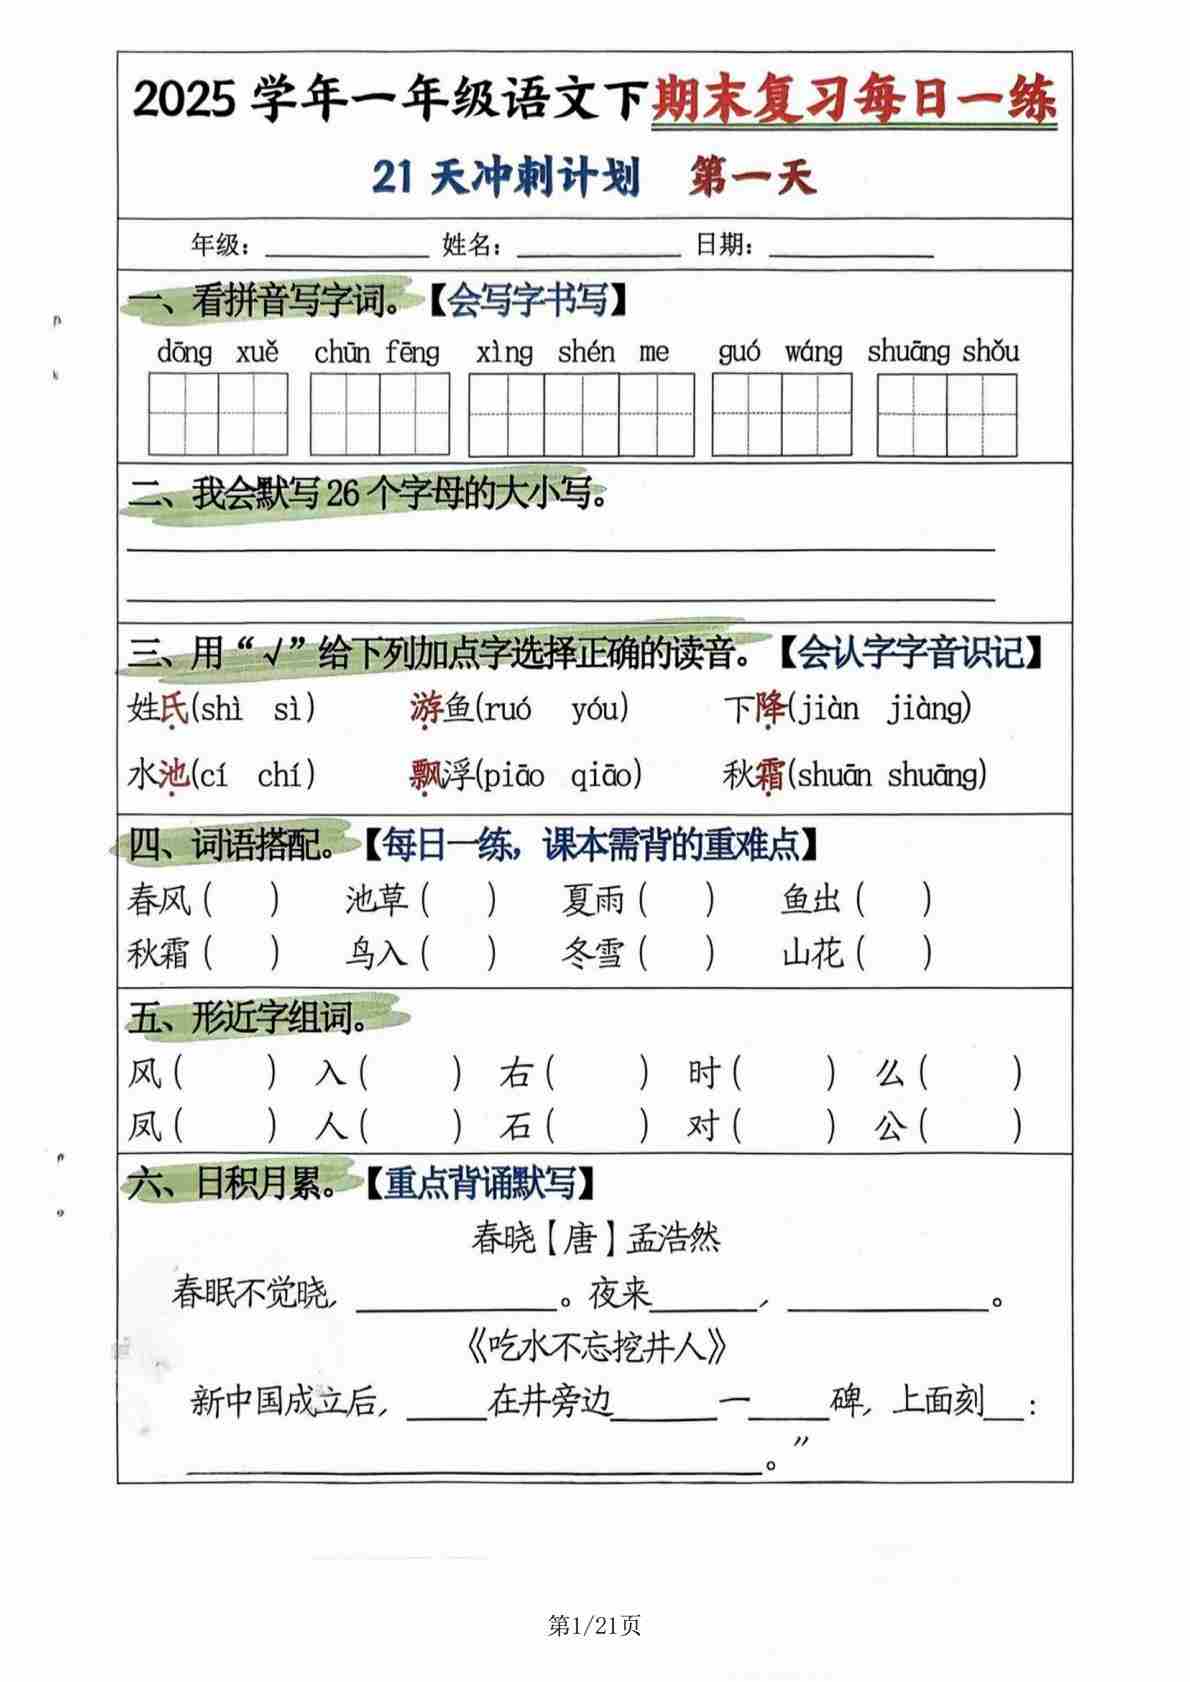 2025学年一年级语文下期末复习每日一练
21天冲刺计划 第一天
年级：________ 姓名：________ 日期：________
一、看拼音写字词。【会写字书写】
dōng xuě chūn fēng xìng shén me guó wáng shuāng shǒu
二、我会默写26个字母的大小写。
三、用“√”给下列加点字选择正确的读音。【会认字字音识记】
姓氏(shì sì) 游鱼(ruó yóu) 下降(jiàn jiàng)
水池(cí chí) 飘浮(piāo qiāo) 秋霜(shuān shuāng)
四、词语搭配。【每日一练，课本需背的重难点】
春风( ) 池草( ) 夏雨( ) 鱼出( )
秋霜( ) 鸟入( ) 冬雪( ) 山花( )
五、形近字组词。
风( ) 入( ) 右( ) 时( ) 么( )
凤( ) 人( ) 石( ) 对( ) 公( )
六、日积月累。【重点背诵默写】
春晓【唐】孟浩然
春眠不觉晓，________。夜来______，________。
《吃水不忘挖井人》
新中国成立后，____在井旁边____一____碑，上面刻__：
________________。”
第1/21页